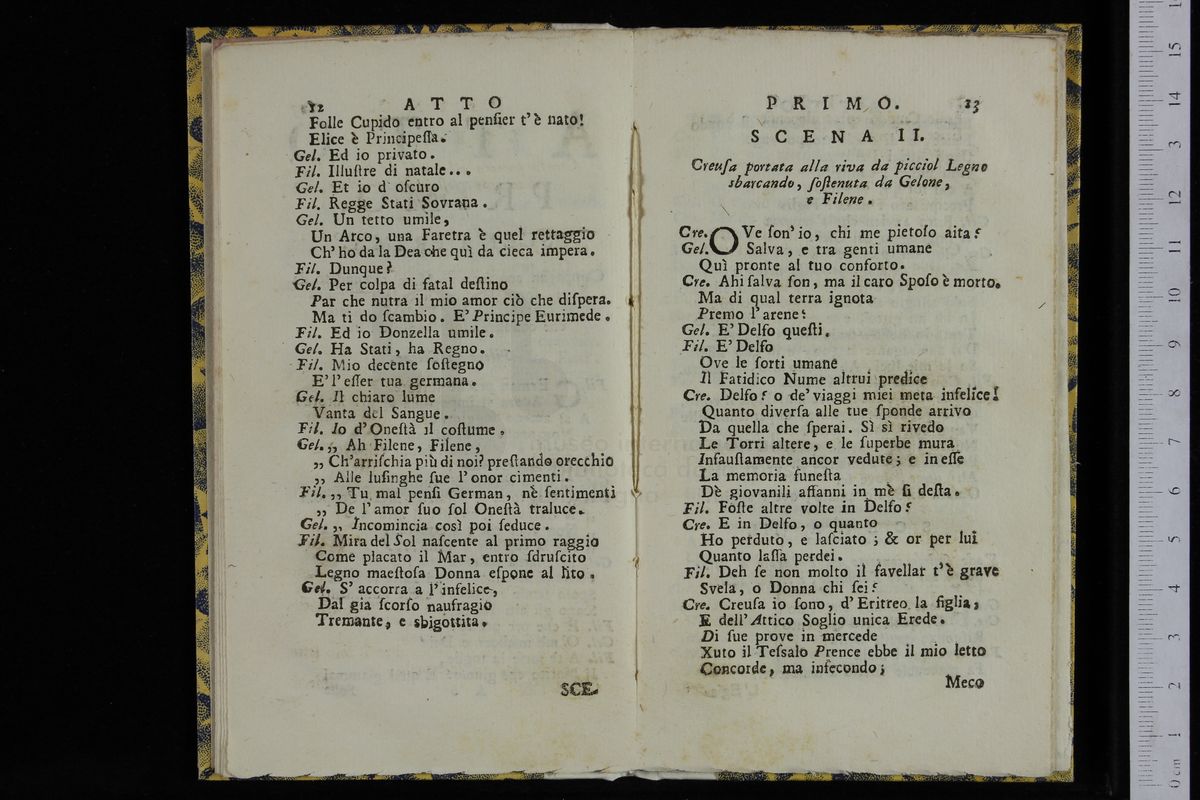 12 ATTO
Folle Cupido entro al penſier t'è nato!
Elice è Principeſſa.
Gel. Ed io privato.
Fil. Illuſtre di natale...
Gel. Et io d oſcuro
Fil. Regge Stati Sovrana.
Gel. Un tetto umile,
Un Arco, una Faretra è quel rettaggio
Ch' ho da la Dea che quì da cieca impera.
Fil. Dunque?
Gel. Per colpa di fatal deſtino
Par che nutra il mio amor ciò che diſpera.
Ma ti do ſcambio. E' Principe Eurimede.
Fil. Ed io Donzella umile.
Gel. Ha Stati, ha Regno.
Fil. Mio decente ſoſtegno
E' l' eſſer tua germana.
Gel. Il chiaro lume
Vanta del Sangue.
Fil. Io d' Oneſtà il coſtume.
Gel. ,, Ah Filene, Filene,
,, Ch'arriſchia più di noi? preſtando orecchio
,, Alle luſinghe ſue l' onor cimenti.
Fil. ,, Tu mal penſi German, nè ſentimenti
,, De l' amor ſuo ſol Oneſtà traluce.
Gel. ,, Incomincia così poi ſeduce.
Fil. Mira del Sol naſcente al primo raggio
Come placato il Mar, entro ſdruſcito
Legno maeſtoſa Donna eſpone al lito.
Gel. S' accorra a l' infelice,
Dal gia ſcorſo naufragio
Tremante, e sbigottita.
SCE-
PRIMO. 13
SCENA II.
Creuſa portata alla riva da picciol Legno
sbarcando, ſoſtenuta da Gelone,
e Filene.
Cre. OVe ſon' io, chi me pietoſo aita?
Gel. Salva, e tra genti umane
Quì pronte al tuo conforto.
Cre. Ahi ſalva ſon, ma il caro Spoſo è morto.
Ma di qual terra ignota
Premo l' arene?
Gel. E' Delfo queſti.
Fil. E' Delfo
Ove le ſorti umane
Il Fatidico Nume altrui predice
Cre. Delfo? o de' viaggi miei meta infelice!
Quanto diverſa alle tue ſponde arrivo
Da quella che ſperai. Sì sì rivedo
Le Torri altere, e le ſuperbe mura
Infauſtamente ancor vedute; e in eſſe
La memoria funeſta
Dè giovanili affanni in mè ſi deſta.
Fil. Foſte altre volte in Delfo?
Cre. E in Delfo, o quanto
Ho perduto, e laſciato; & or per lui
Quanto laſſa perdei.
Fil. Deh ſe non molto il favellar t'è grave
Svela, o Donna chi ſei?
Cre. Creuſa io ſono, d' Eritreo la figlia,
E dell' Attico Soglio unica Erede.
Di ſue prove in mercede
Xuto il Teſsalo Prence ebbe il mio letto
Concorde, ma infecondo;
Meco